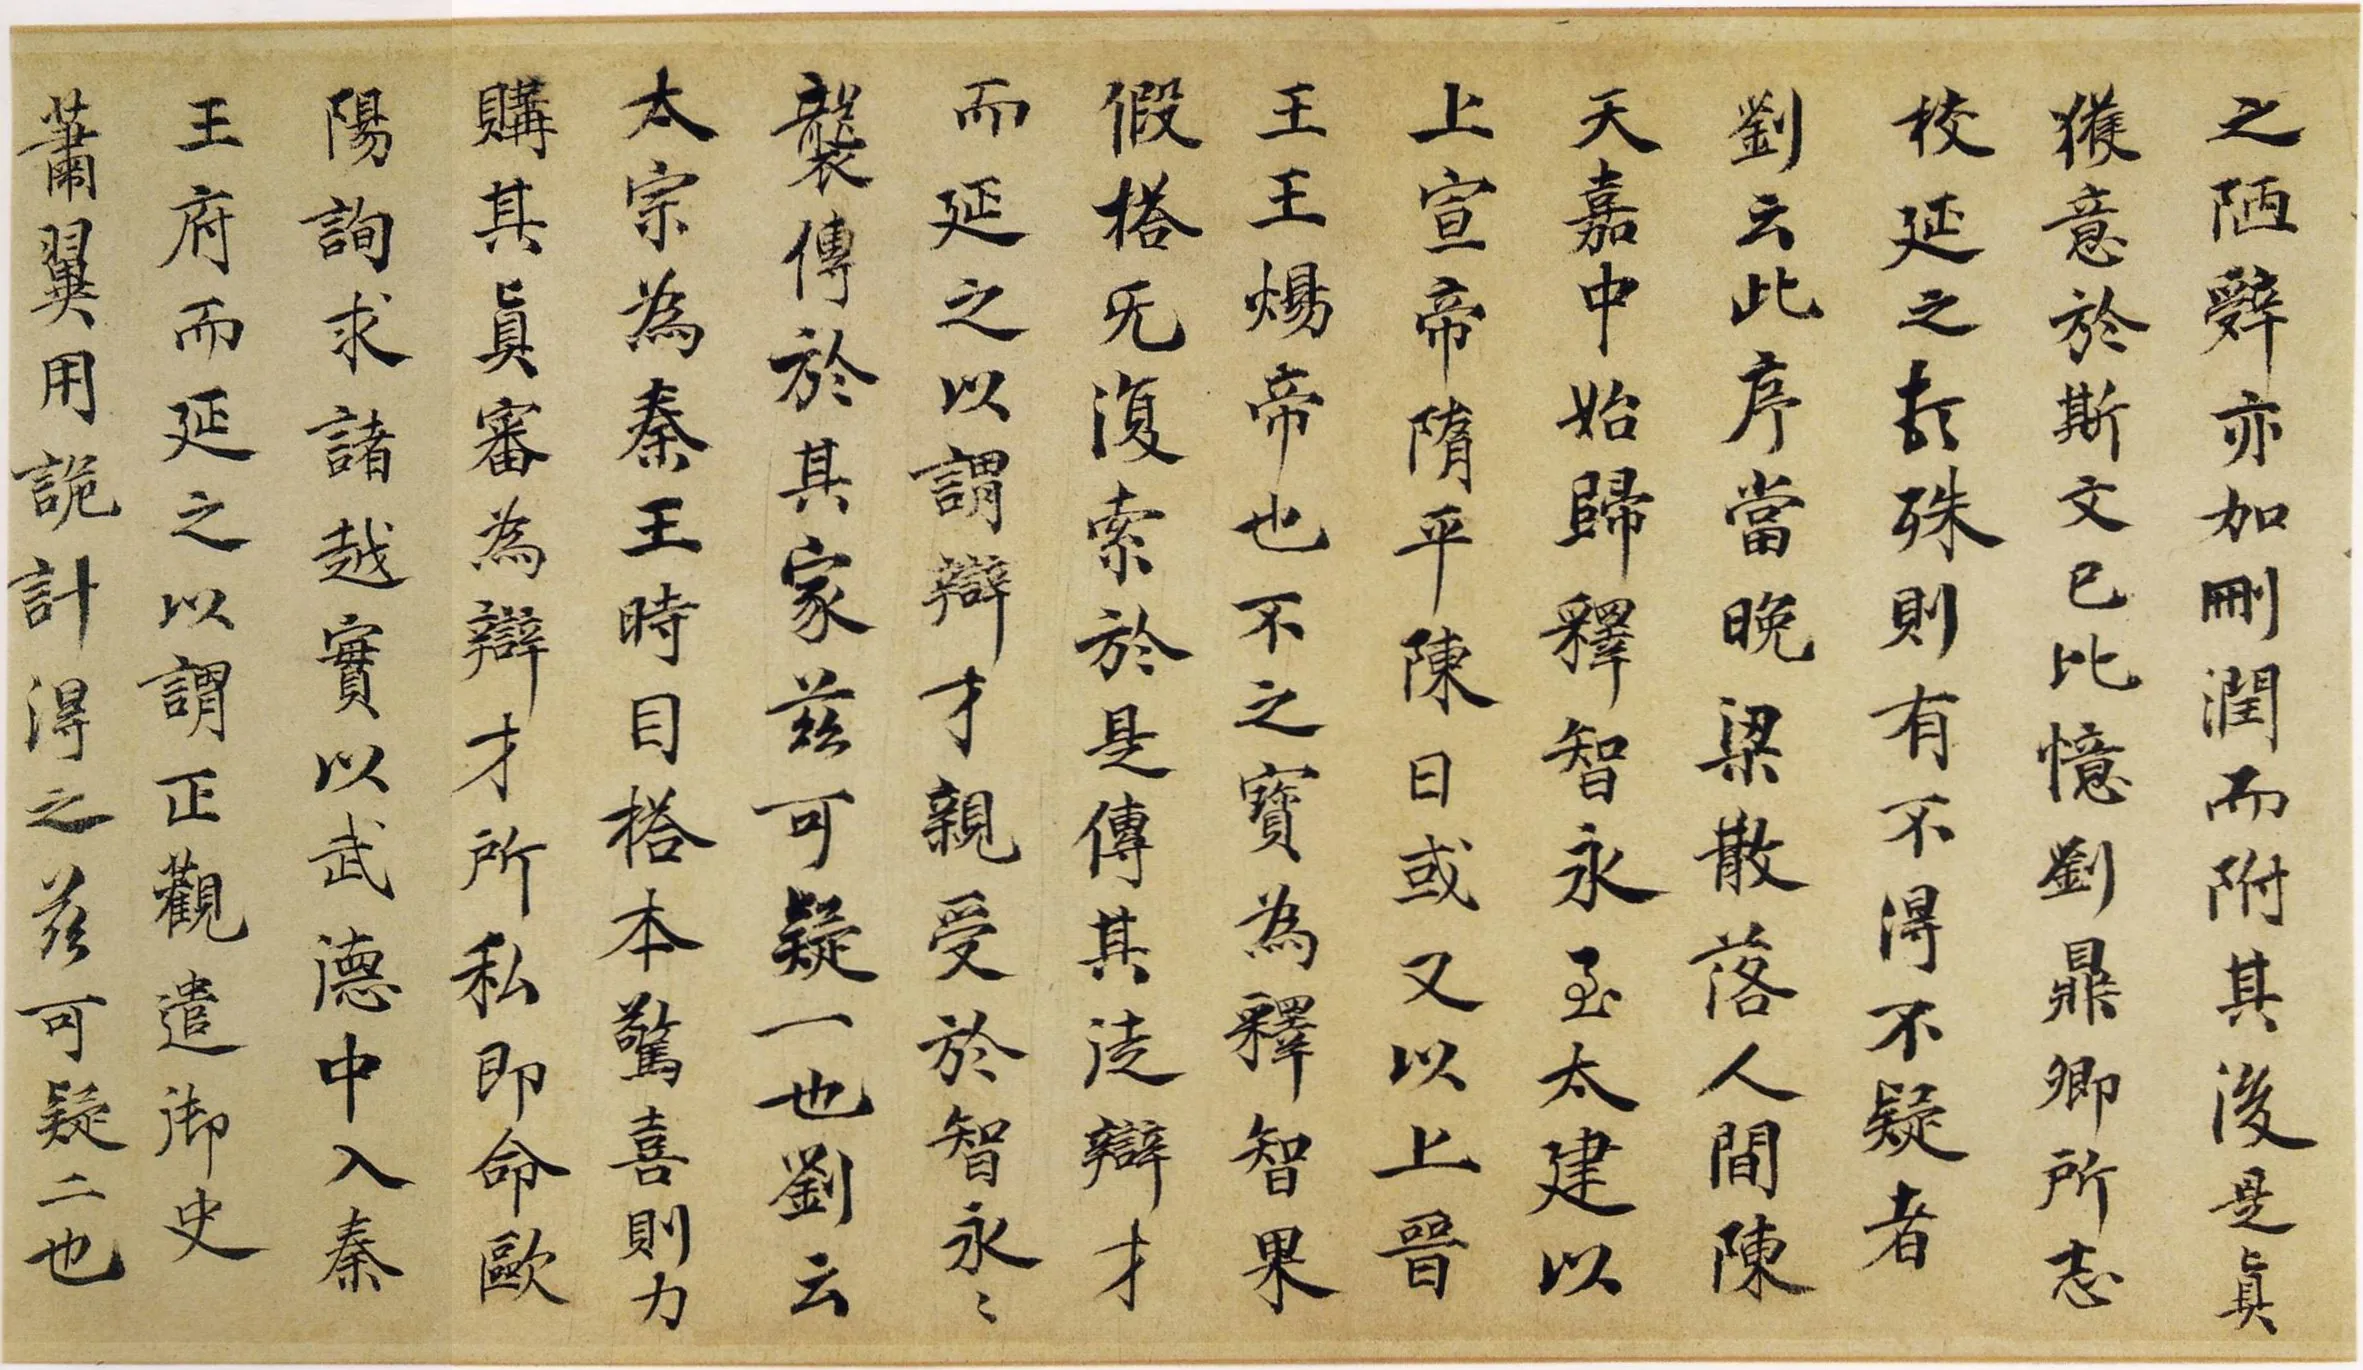 之陋辭亦加刪潤而附其後是眞
獲意於斯文已比憶劉鼎卿所志
校延之所殊則有不得不疑者
劉云此序當晚梁散落人間陳
天嘉中始歸釋智永至太建以
上宣帝隋平陳日或又以上晉
王王煬帝也不之寶為釋智果
假榙旡復索於是傳其徒辯才
而延之以謂辯才親受於智永〻
襲傳於其家茲可疑一也劉云
太宗為秦王時目榙本驚喜則力
購其眞審為辯才所私即命歐
陽詢求諸越實以武德中入秦
王府而延之以謂正觀遣御史
蕭翼用詭計得之茲可疑二也